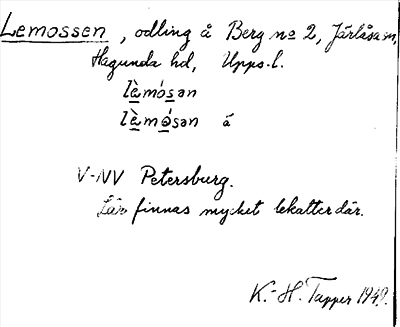 Lemossen, odling å Berg no 2, Järlåsa sn,
Hagunda hd, Upps. l.
lèmósən
lèmósən á
V-NV Petersburg.
Lär finnas mycket lekatter där.
K.-H. Tapper 1949.